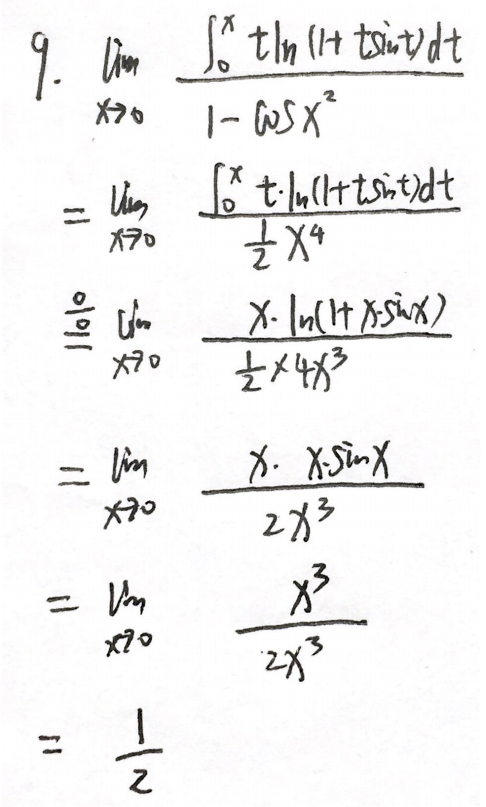 9. lim_{x→0} \frac{∫_0^x t ln(1+tsint)dt}{1-cosx^2}
= lim_{x→0} \frac{∫_0^x t·ln(1+tsint)dt}{\frac{1}{2}x^4}
\overset{\frac{0}{0}}{=} lim_{x→0} \frac{x·ln(1+x·sinx)}{\frac{1}{2}×4x^3}
= lim_{x→0} \frac{x·x·sinx}{2x^3}
= lim_{x→0} \frac{x^3}{2x^3}
= \frac{1}{2}